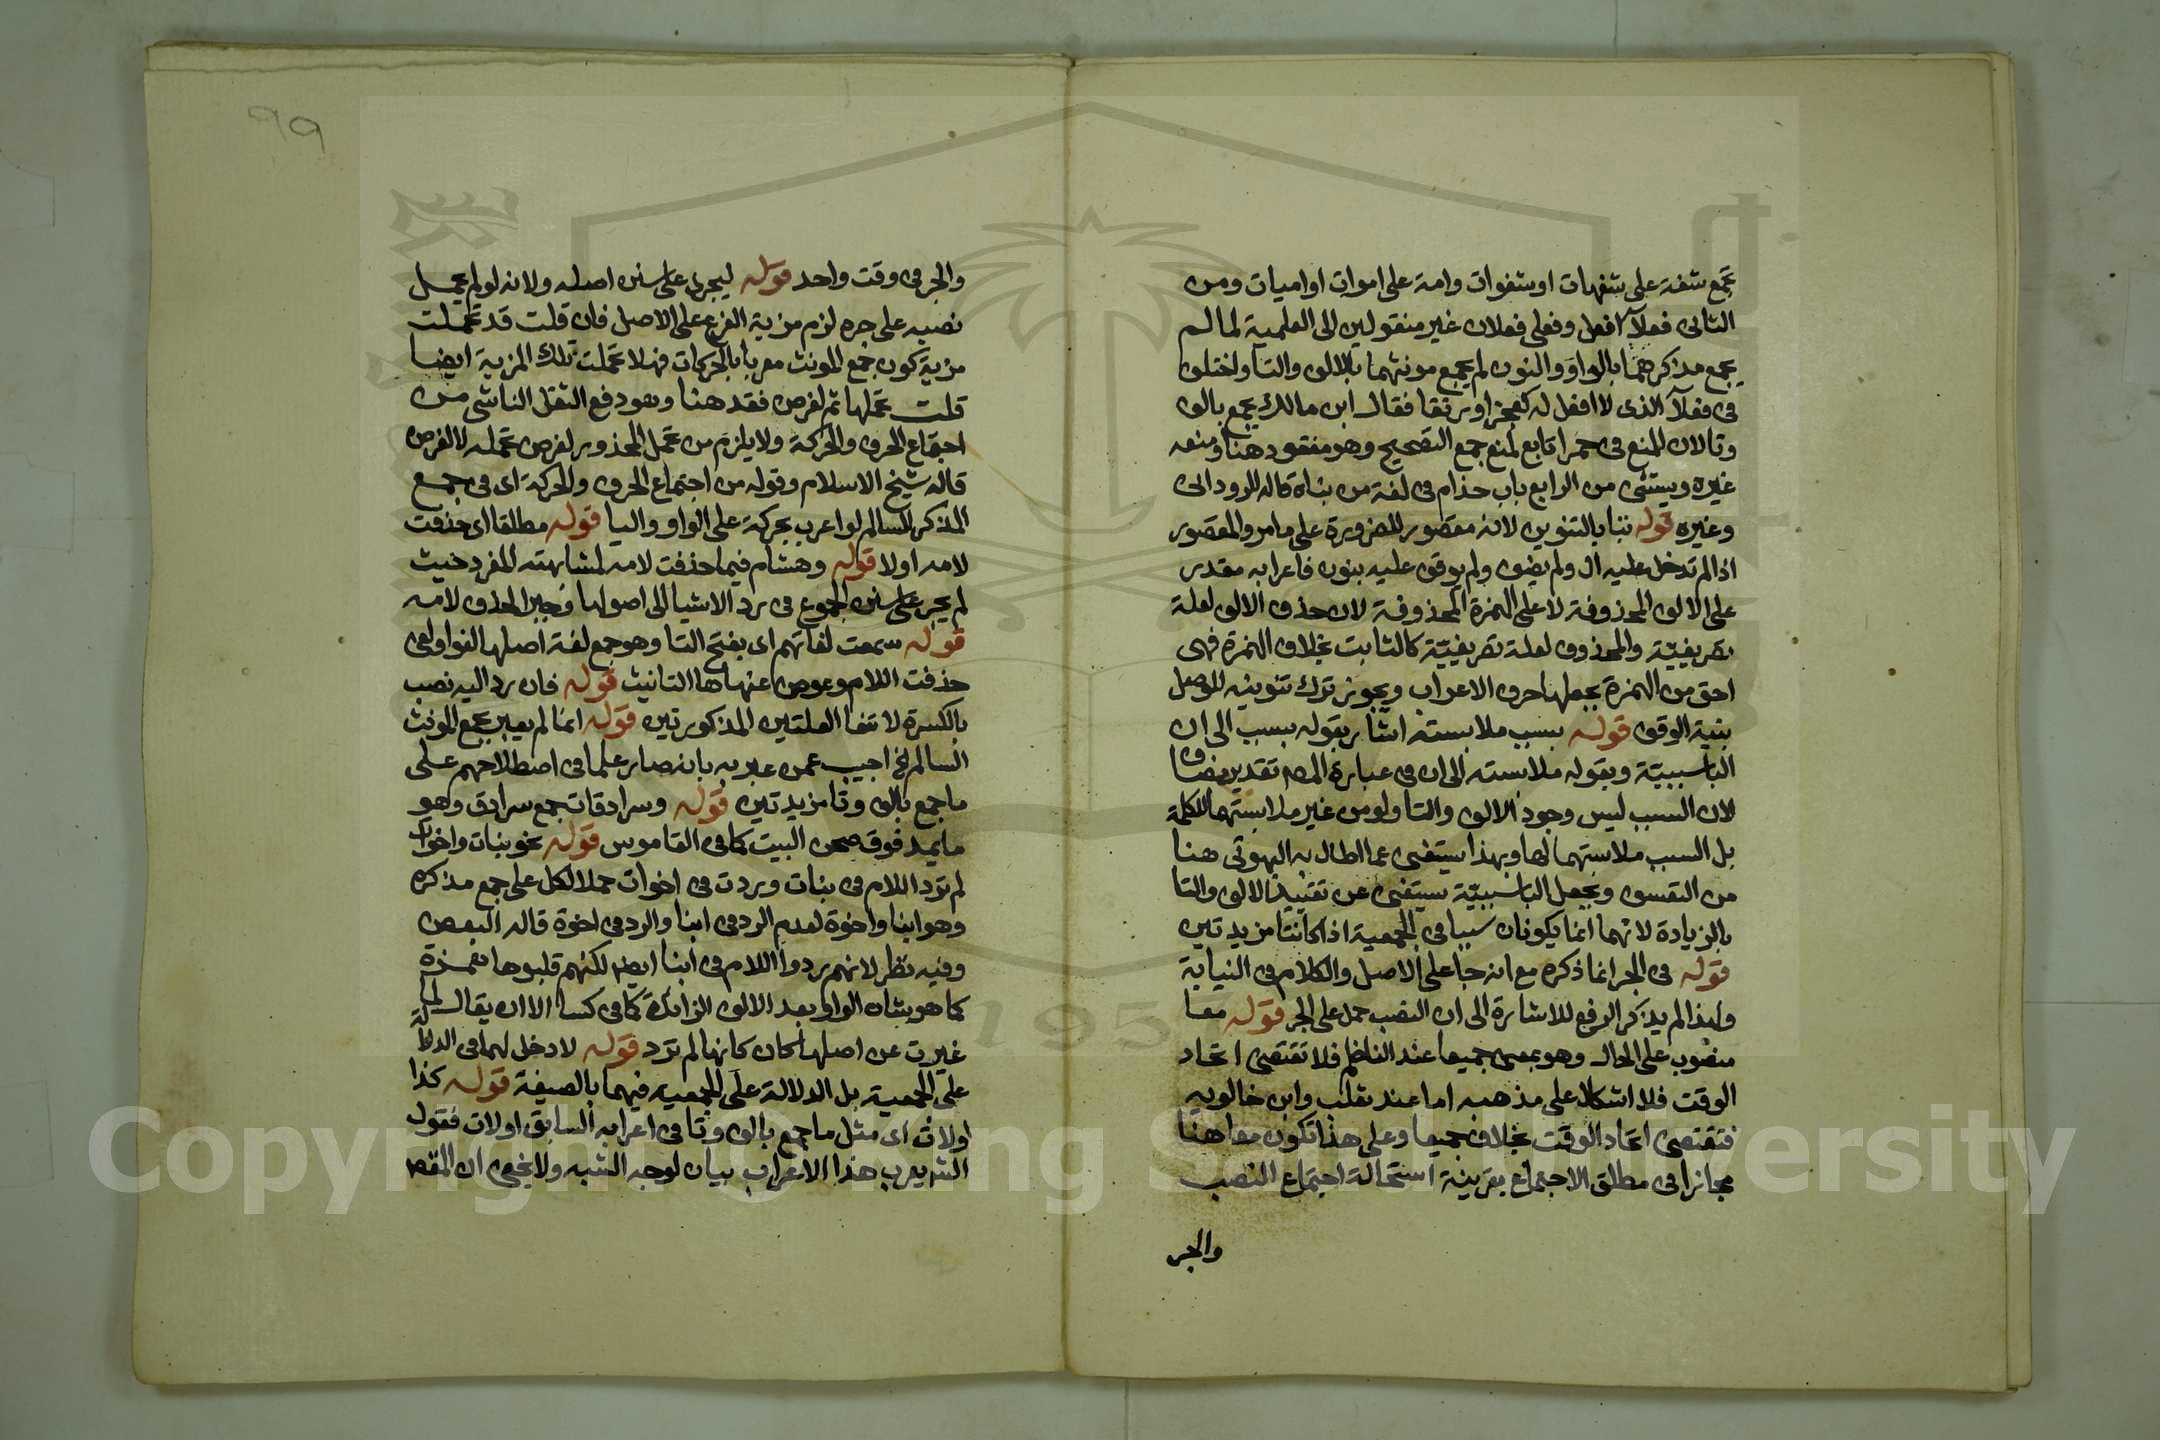 تجمع شفة على شفهات او شفوات وامة على اموات او اميات ومن
الثانى فعلآ افعل وفعلى فعلان غير منقولين الى العلمية لما لم
يجمع مذكرهما بالواو والنون لم يجمع مونثهما بالالف والتا واختلف
فى فعلآ الذى لا افعل له كعجزا ورتقا فقال ابن مالك يجمع بالف
وتا لان المنع فى حمرا تابع لمنع جمع التصحيح وهو مفقود هنا ومنعه
غيره ويستثنى من الرابع باب حذام فى لغة من بناه قاله الرودانى
وغيره قوله بنا بالتنوين لانه مقصور للضرورة على مامر والمقصور
اذا لم تدخل عليه ال ولم يضف ولم يوقف عليه بنون فاعرابه مقدر
على الالف المحذوفة لا على الهمزة المحذوفة لان حذف الالف لعلة
تصريفيّة والمحذوف لعلة تصريفيّة كالثابت بخلاف الهمزة فهى
احق من الهمزة بجعلها حرف الاعراب ويجوز ترك تنوينه للوصل
بنية الوقف قوله بسبب ملابسته اشار بقوله بسبب الى ان
الباسببيّة وبقوله ملابسته الى ان فى عبارة المصـ تقدير مضاف
لان السبب ليس وجود الالف والتا ولو من غير ملابستهما للكلمة
بل السبب ملابستهما لها وبهذا يستغنى عما اطال به البهوتى هنا
من التعسف وبجعل الباسببيّة يستغنى عن تقييد الالف والتا
بالزيادة لانهما انما يكونان سببا فى الجمعية اذا كانتا مزيدتين
قوله فى الجر انما ذكره مع انه جا على الاصل والكلام فى النيابة
ولهذا لم يذكر الرفع للاشارة الى ان النصب حمل على الجر قوله معا
منصوب على الحال وهو بمعنى جميعا عند الناظم فلا تقتضى اتحاد
الوقت فلا اشكال على مذهبه اما عند ثعلب وابن خالويه
فتقتضى اتحاد الوقت بخلاف جميعا وعلى هذا تكون معا هنا
مجازا فى مطلق الاجتماع بقرينة استحالة اجتماع النصب
والجر
٩٩
والجر فى وقت واحد قوله ليجرى على سنن اصله ولانه لو لم يحمل
نصبه على جره لزم مزية الفرع على الاصل فان قلت قد تحملت
مزية كون جمع المونث معربا بالحركات فهلا تحملت تلك المزية ايضا
قلت تحملها ثم لغرض فقد هنا وهو دفع الثقل الناشى من
اجتماع الحرف والحركة ولا يلزم من تحمل المحذور لغرض تحمله لا لغرض
قاله شيخ الاسلام وقوله من اجتماع الحرف والحركة اى فى جمع
المذكر السالم لو اعرب بحركة على الواو واليا قوله مطلقا اى حذفت
لامه اولا قوله وهشام فيما حذفت لامه لمشابهته المفرد حيث
لم يجر على سنن الجموع فى رد الاشيا الى اصولها وجبرا لحذف لامه
قوله سمعت لغاتهم اى بفتح التا وهو جمع لغة اصلها لغو او لغى
حذفت اللام وعوض عنها ها التانيث قوله فان رد اليه نصب
بالكسرة لانتفا العلتين المذكورتين قوله انما لم يعبر بجمع المونث
السالم الخ اجيب عمن عبر به بانه صار علما فى اصطلاحهم على
ما جمع بالف وتا مزيدتين قوله وسرادقات جمع سرادق وهو
ما يمد فوق صحن البيت كما فى القاموس قوله نحو بنات واخوات
لم ترد اللام فى بنات وردت فى اخوات حملا لكل على جمع مذكره
وهو ابنا واخوة لعدم الرد فى ابنا والرد فى اخوة قاله البعض
وفيه نظر لانهم ردوا اللام فى ابنا ايضـ لكنهم قلبوها همزة
كما هو شان الواو بعد الالف الزائدة كما فى كسا الا ان يقال لما
غيرت عن اصلها كان كانها لم ترد قوله لا دخل لهما فى الدلالة
على الجمعية بل الدلالة على الجمعيه فيهما بالصيغة قوله كذا
اولات اى مثل ما جمع بالف وتا فى اعرابه السابق اولات فقول
الشـ يعرب هذا الاعراب بيان لوجه الشبه ولا يخفى ان المقصـ
Copyright © King Saud University
1957